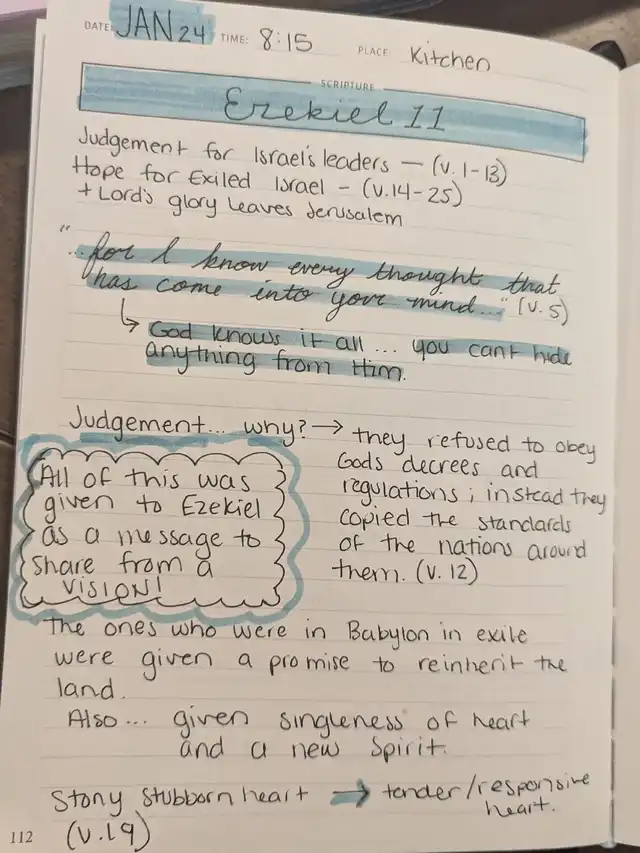 DATE: JAN 24 TIME: 8:15 PLACE Kitchen
SCRIPTURE
Ezekiel 11
Judgement for Israel's leaders — (v. 1-13)
Hope for Exiled Israel - (v.14-25)
+ Lord's glory leaves Jerusalem
"...for I know every thought that
has come into your mind..." (v. 5)
God knows it all... you cant hide
anything from Him.
Judgement... why? → they refused to obey
Gods decrees and
regulations; instead they
copied the standards
of the nations around
them. (v. 12)
All of this was
given to Ezekiel
as a message to
share from a
VISION!
The ones who were in Babylon in exile
were given a promise to reinherit the
land.
Also... given singleness of heart
and a new Spirit.
Stony stubborn heart → tender/responsive
heart.
(v.19)
112